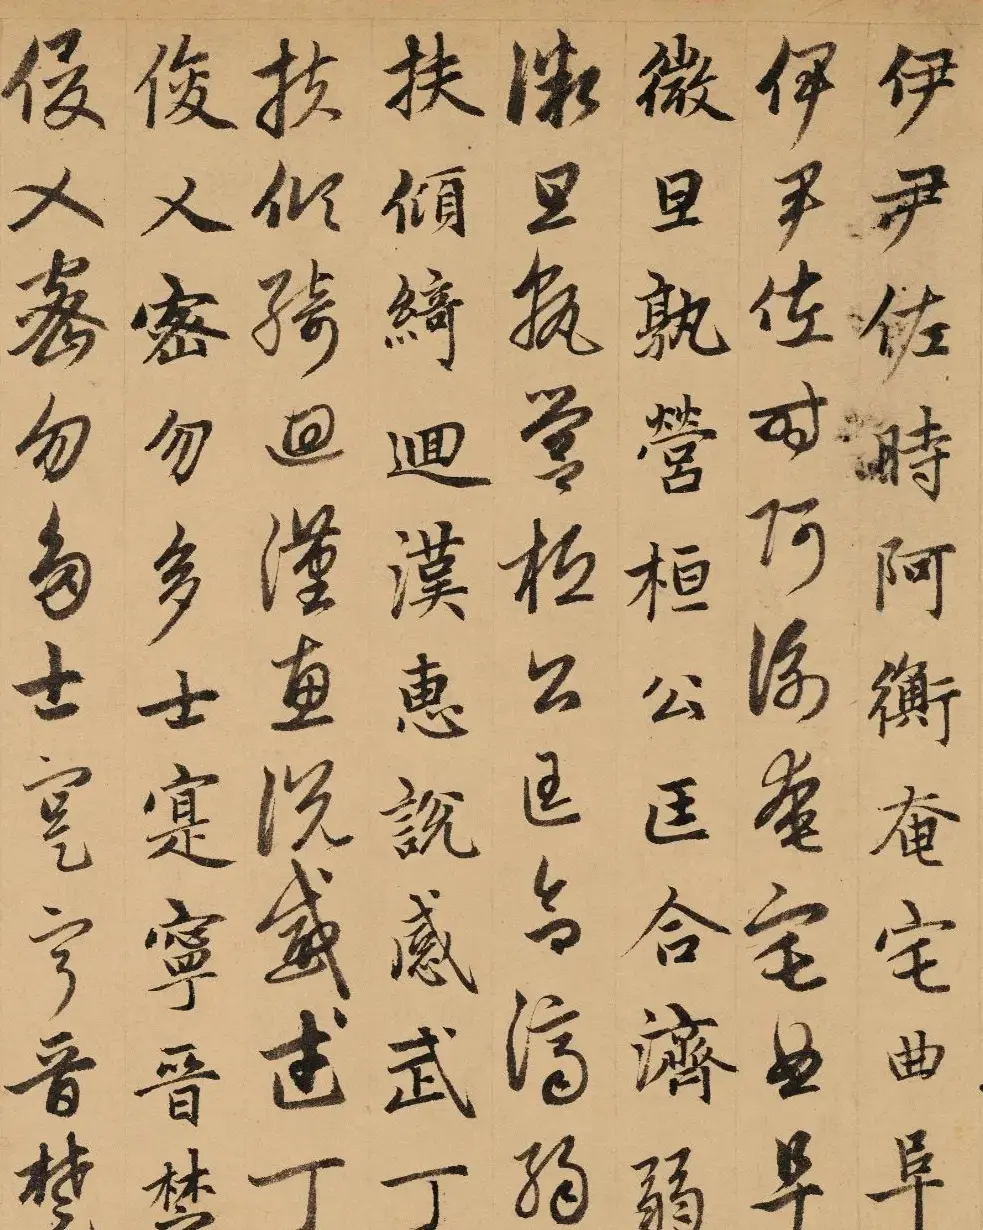 伊尹佐時阿衡奄宅曲阜
伊尹佐时阿衡奄宅曲阜
微旦孰營桓公匡合濟弱
微旦孰營桓公匡合濟弱
扶傾綺迴漢惠說感武丁
扶傾綺迴漢惠說感武丁
俊乂密勿多士寔寧晉楚
俊乂密勿多士寔寧晉楚